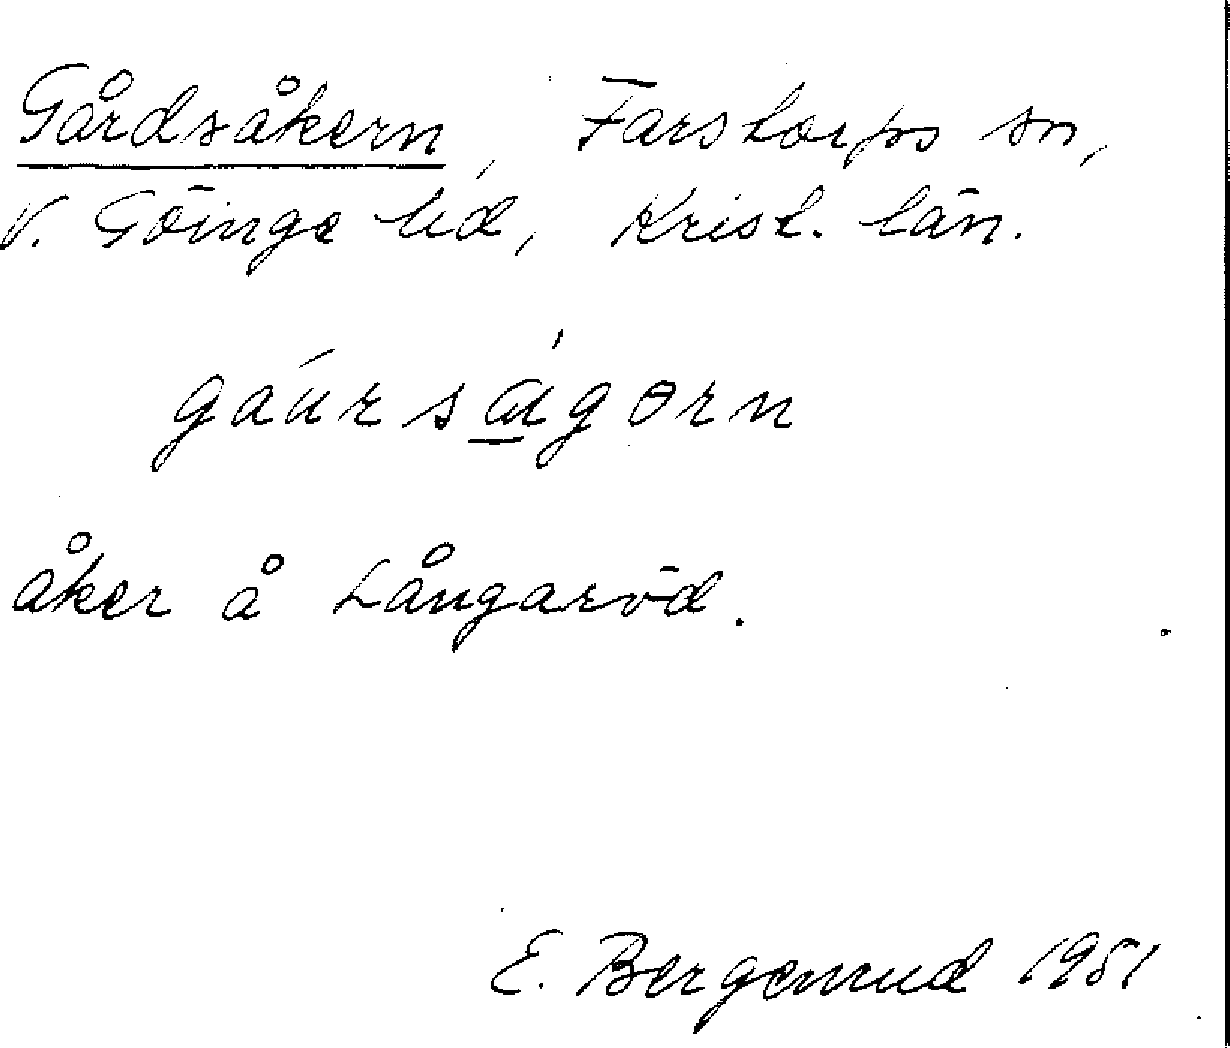 Gårdsåkern, Farstorps sn,
V. Göinge hd, Krist. län.
gáurságərn
åker å Långaröd.
E. Bergenrud 1951